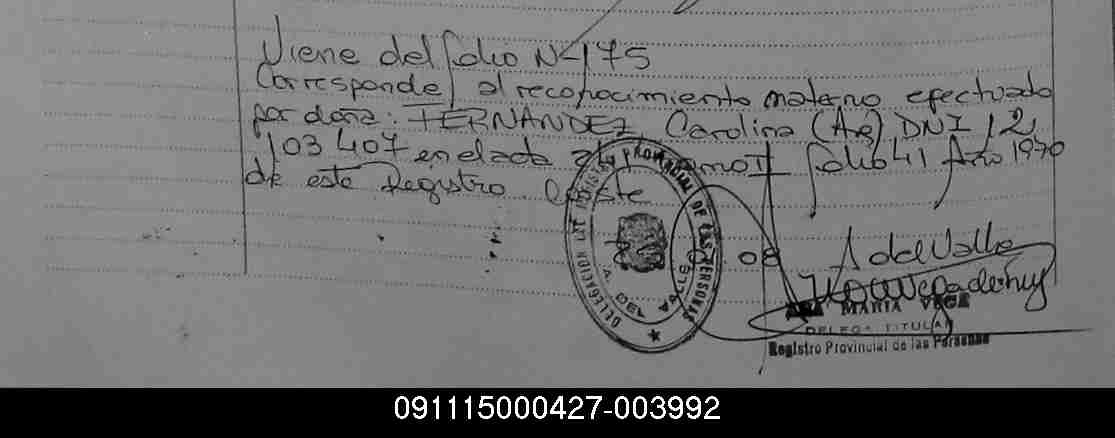 Viene del folio Nº 175
Corresponde al reconocimiento materno efectuado
por doña: FERNANDEZ, Carolina (Ar) DNI 12
103 407 en el acta Tomo II folio 41 Año 1970
de este Registro. Conste
08
A del Valle
ANA MARIA VEGA
DELEGA TITULAR
Registro Provincial de las Personas
DELEGACION DEL REGISTRO PROVINCIAL DE LAS PERSONAS
A. DEL VALLE
091115000427-003992